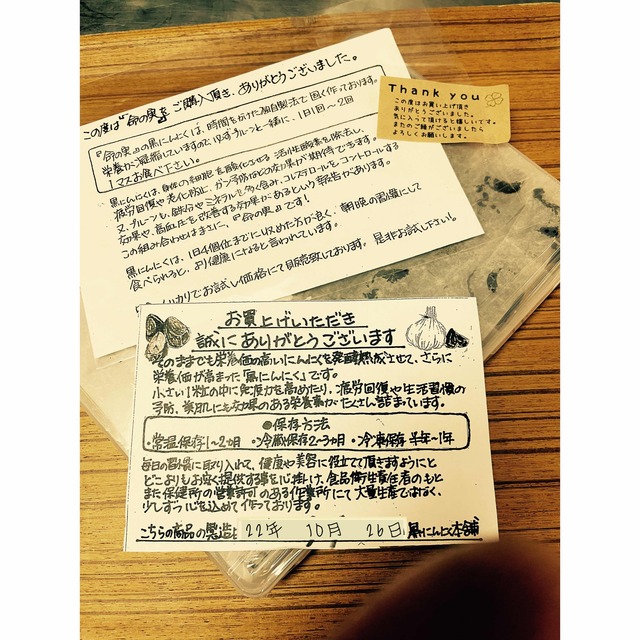 この度は『命の実』をご購入頂き、ありがとうございました。
『命の実』の黒にんにくは、時間を掛けた独自製法で固く作っております。
栄養が凝縮していますので、ぶどうプルーンと一緒に、1日1回〜2回
1マスお食べ下さい。
黒にんにくは、身体の細胞を酸化させる活性酸素を除去し、
疲労回復や老化防止、ガン予防などの効果が期待できます。
又、プルーンも、鉄分やミネラルを多く含み、コレステロールをコントロールする
効果や、高血圧を改善する効果があるという報告があります。
この組み合わせはまさに、『命の実』です!
黒にんにくは、1日4個位までに収めた方が良く、朝晩の習慣にして
食べられると、より健康になると言われています。
お試し価格にて販売致しております。是非お試し下さい。
Thank you
この度はお買い上げ頂き
ありがとうございました。
気に入って頂けると嬉しいです。
またのご縁がございましたら
よろしくお願いします。
お買上げいただき
誠にありがとうございます
そのままでも栄養価の高いにんにくを発酵熟成させて、さらに
栄養価が高まった「黒にんにく」です。
小さい1粒の中に免疫力を高めたり、疲労回復や生活習慣の
予防、美肌にも効果のある栄養素がたくさん詰まっています。
●保存方法
・常温保存1〜2ヵ月 ・冷蔵保存2〜3ヵ月 ・冷凍保存 半年〜1年
毎日の習慣に取り入れて、健康や美容に役立てて頂きますようにと
どこよりもお安く提供する事を心掛け、食品衛生責任者のもと
また保健所の営業許可のある作業所にて大量生産ではなく、
少しずつ心を込めて作っております。
こちらの商品の製造は 22年 10月 26日 黒にんにく本舗